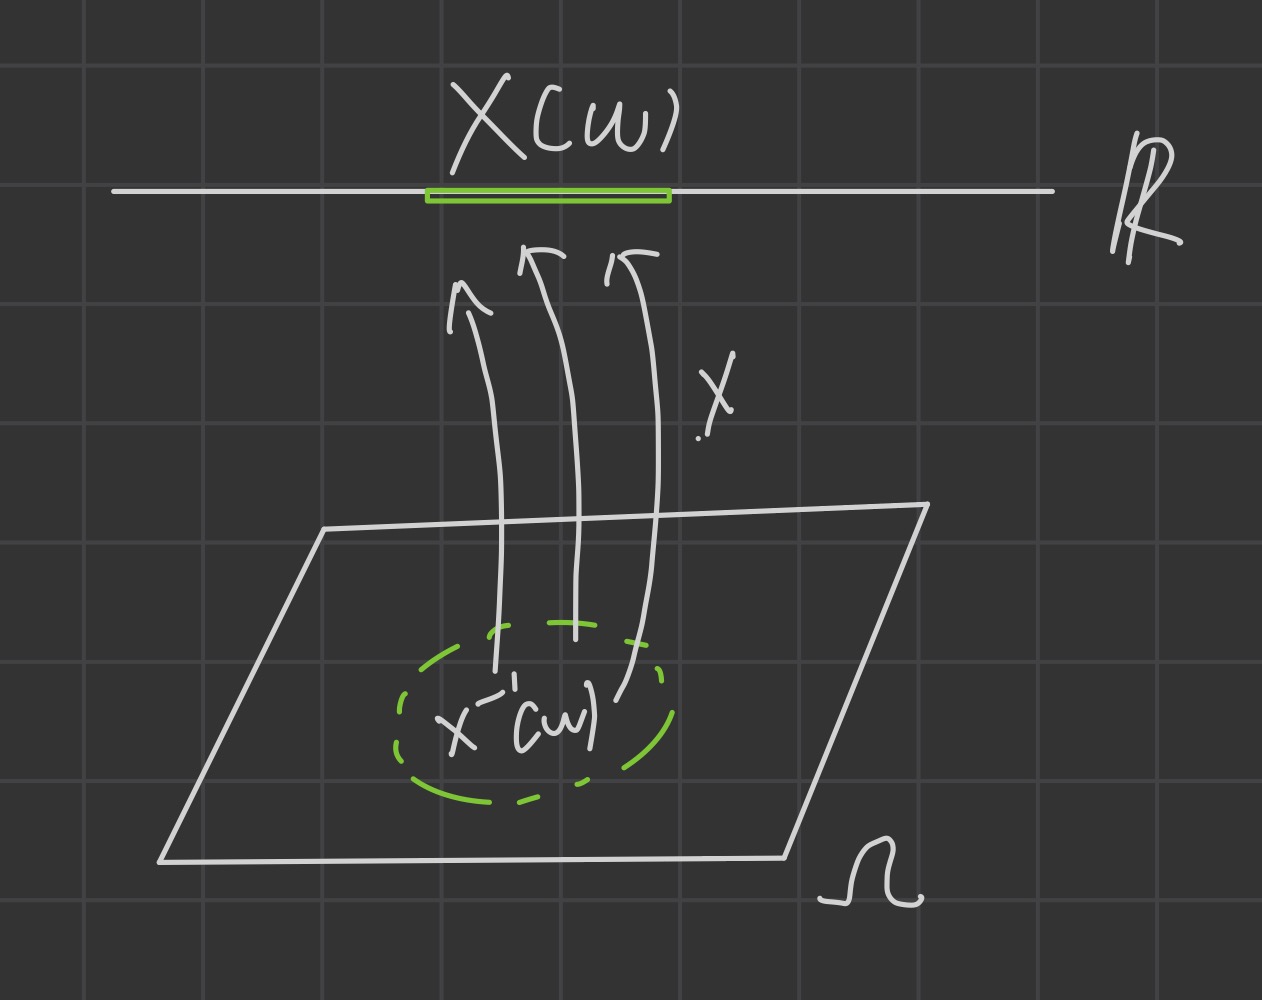 X(ω)
ℝ
X
X⁻¹(ω)
Ω